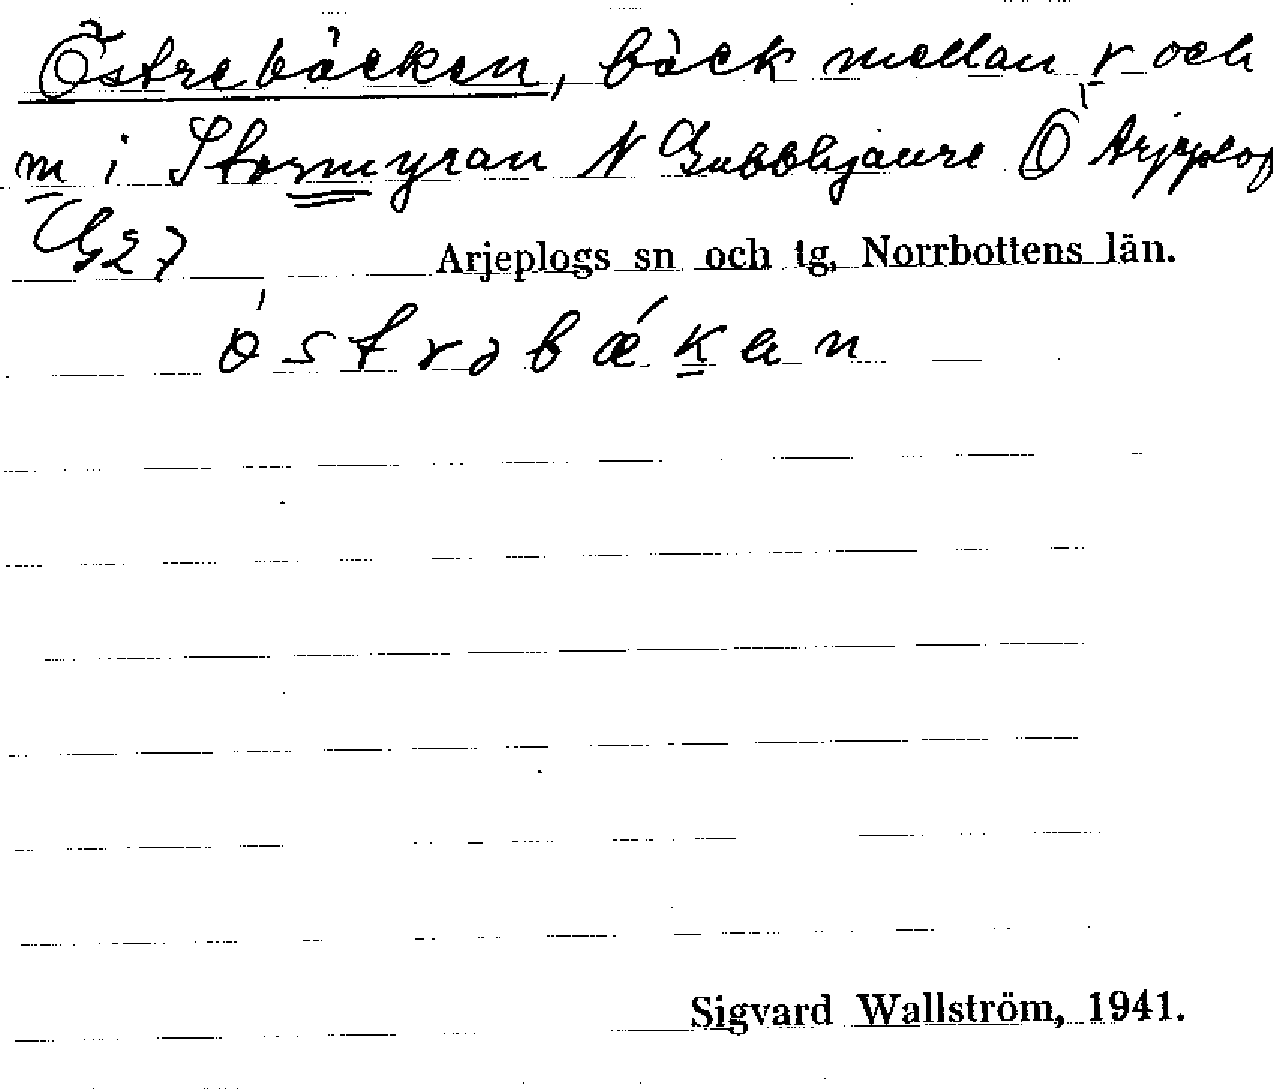 Östrebäcken, bäck mellan r och
m i Stormyran N Gubbhjaure Ö Arjeplog
G27 Arjeplogs sn och tg, Norrbottens län.
östrəbækan
Sigvard Wallström, 1941.